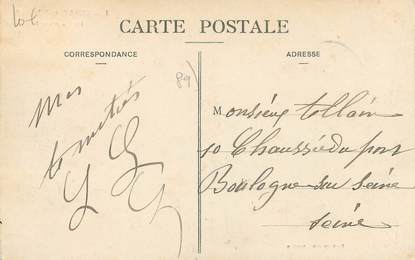 Lot
CARTE POSTALE
CORRESPONDANCE
ADRESSE
89
Mes
amitiés
Monsieur Allain
10 Chaussée du pont
Boulogne sur Seine
Seine